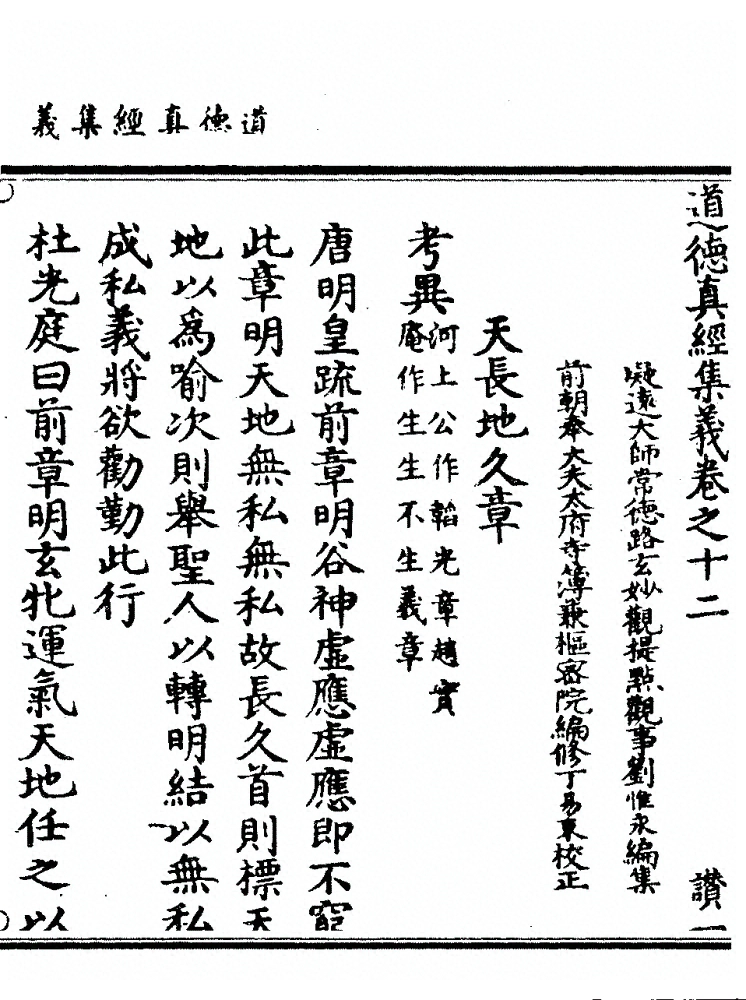 道德真經集義
道德真經集義卷之十二 讚一
凝遠大師常德路玄妙觀提點觀事劉惟永編集
前朝奉大夫太府寺簿兼樞密院編修丁易東校正
天長地久章
考異河上公作韜光章趙實
庵作生生不生義章
唐明皇疏前章明谷神虛應虛應即不窮
此章明天地無私無私故長久首則標天
地以為喻次則舉聖人以轉明結以無私
成私義將欲勸勤此行
杜光庭曰前章明玄牝運氣天地任之以